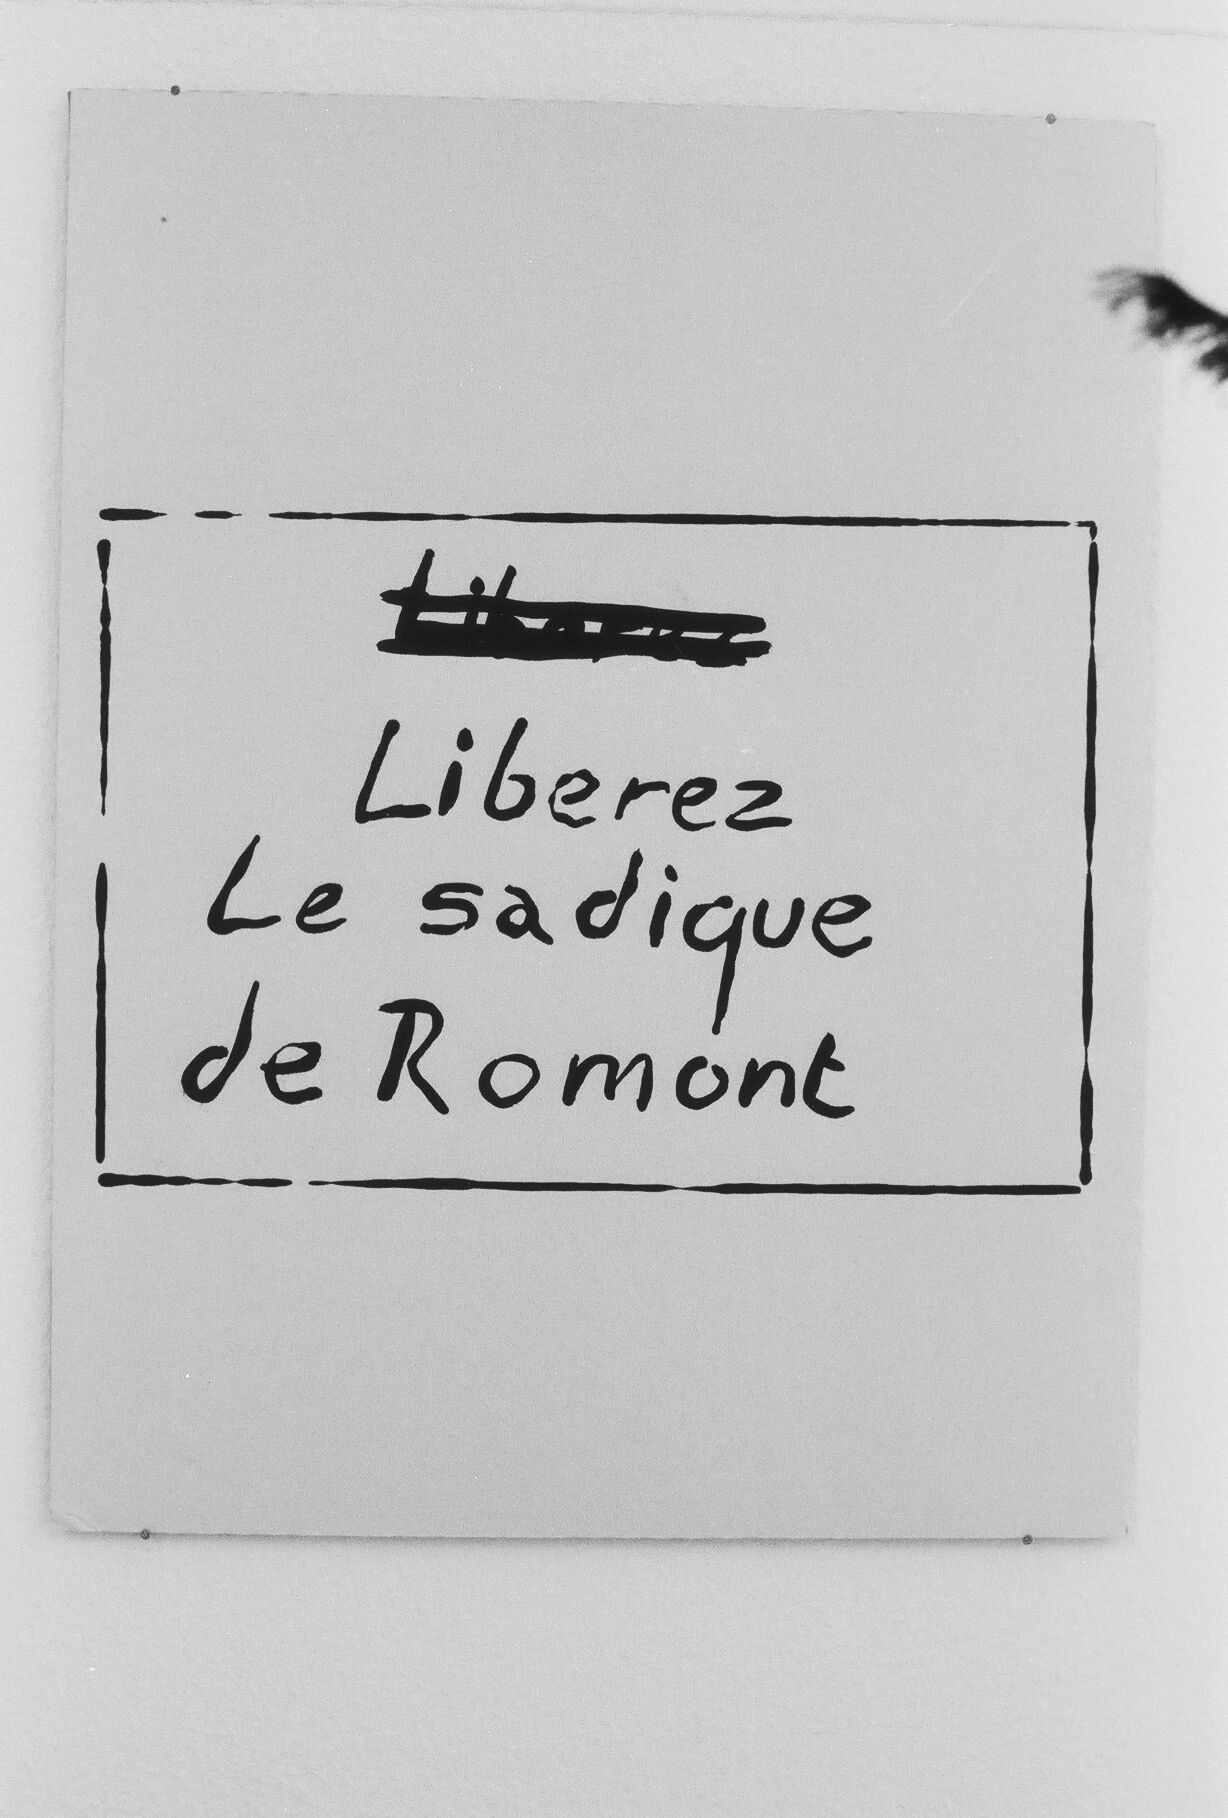 Liberez
Le sadique
de Romont